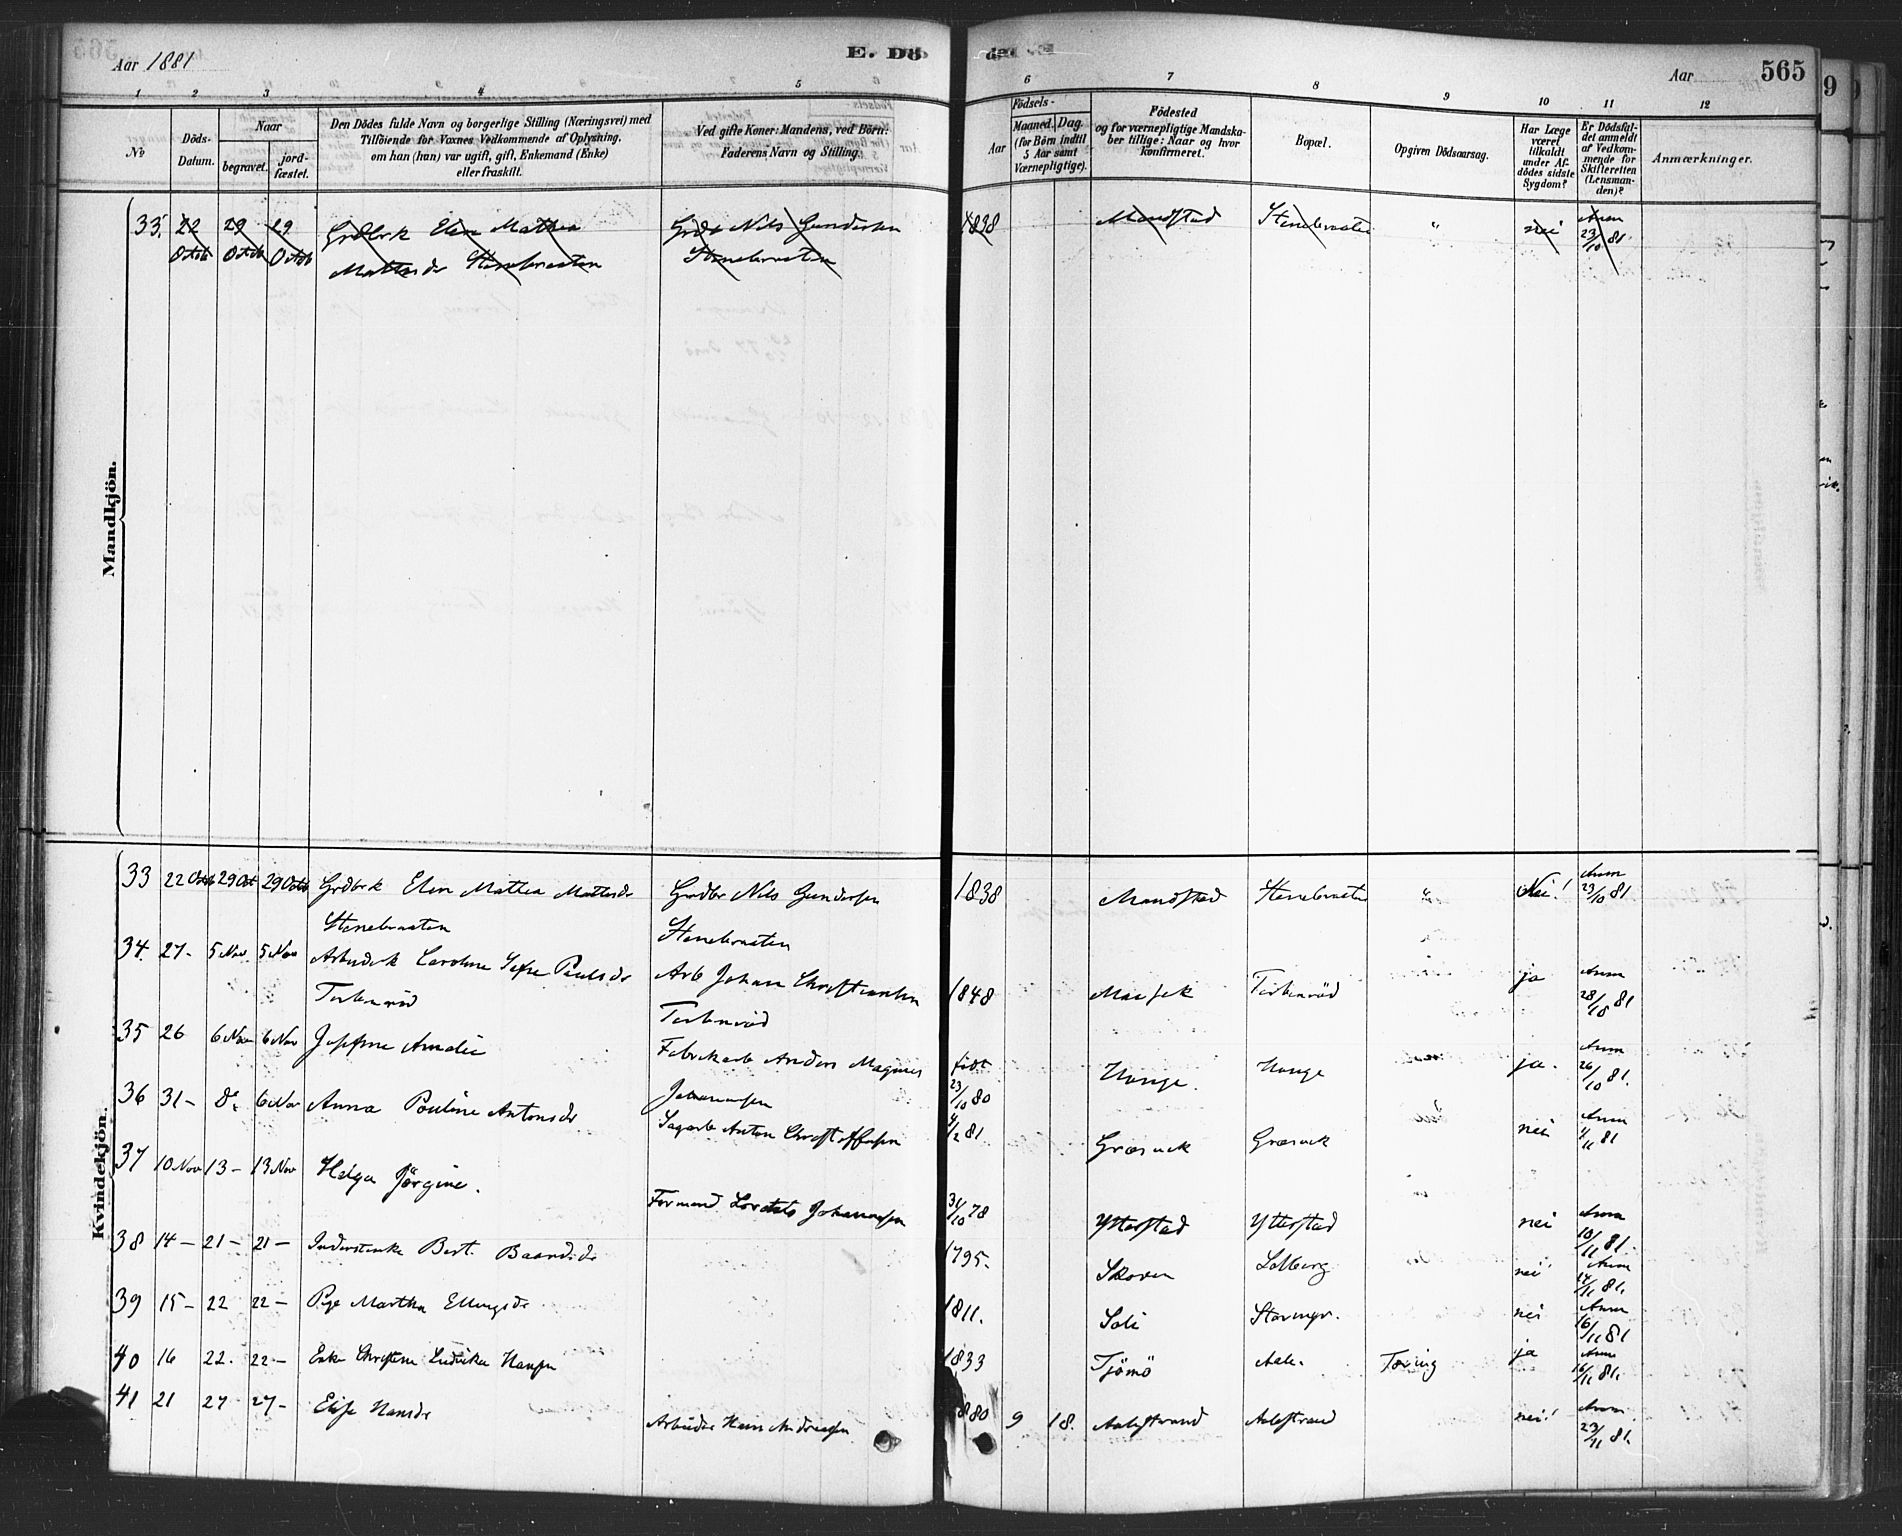 Aar 1881
E. Dö
de.
Aar
565
1 2 3 4 5
6 7 8 9 10 11 12
No
Döds-
Datum.
Naar
begravet.
jord-
fæstet.
Den Dödes fulde Navn og borgerlige Stilling (Næringsvei) med
Tilföiende for Voxnes Vedkommende af Oplysning,
om han (hun) var ugift, gift, Enkemand (Enke)
eller fraskilt.
Ved gifte Koner: Mandens, ved Börn:
Faderens Navn og Stilling.
Födsels-
Aar
Maaned. Dag.
(for Börn indtil
5 Aar samt
Værnepligtige).
Födested
og for værnepligtige Mandska-
ber tillige: Naar og hvor
konfirmeret.
Bopæl.
Opgiven Dödsaarsag.
Har Læge
været
tilkaldt
under Af-
dödes sidste
Sygdom?
Er Dödsfal-
det anmeldt
af Vedkom-
mende for
Skifteretten
(Lensman-
den)?
Anmærkninger.
Mandkjön.
33. 22 29 29 Grdbrk Elen Mathea Grdbr Nils Gundersen 1838 Mandstad Stenebraaten " nei Anm
Octob Octob Octob Mattisdr Stenebraaten Stenebraaten 23/10 81.
Kvindekjön.
33 22 Octb 29 Oct 29 Octb Grdbrk Elen Mathea Mattisdr Grdbr Nils Gundersen 1838 Mandstad Stenebraaten " Nei! Anm 23/10 81
Stenebraaten Stenebraaten
34. 27- 5 Nov. 5 Nov Arbeiderk Caroline Paulsdr Arb Johan Christiansen 1848 ja Anm 28/10 81
Torbenröd Torbenröd Torbenröd
35 26 6 Nov 6 Nov Josefine Amalie Fabrikarb Anders Magnus födt 23/10 80 Hauge. Hauge ja. Anm 26/10 81.
Johannesen
36 31- D. 6 Nov Anna Pouline Antonsdr Sagarb Anton Christoffersen 4/2 81. Græsvik Græsvik nei Anm 4/11 81
37 10 Nov 13- 13 Nov Helga Jørgine. Formand Johannesen 31/10 78 Ytterstad Ytterstad nei Anm 10/11 81.
38 14- 21- 21- Inderstenke Bert. 1795. Skoven nei Anm 11 81.
39 15- 22 22- Pige Martha Ellingsdr 1811. Soli nei Anm 16/11 81
40 16 22. 22- Enke Christine Hansen 1833 Tjömö Aale. Tæring ja Anm 16/11 81.
41 21 27 27- Elise Hansdr Arbeider Hans Andreassen 1880 9 18. Aalestrand Aalestrand nei! Anm 23/11 81.